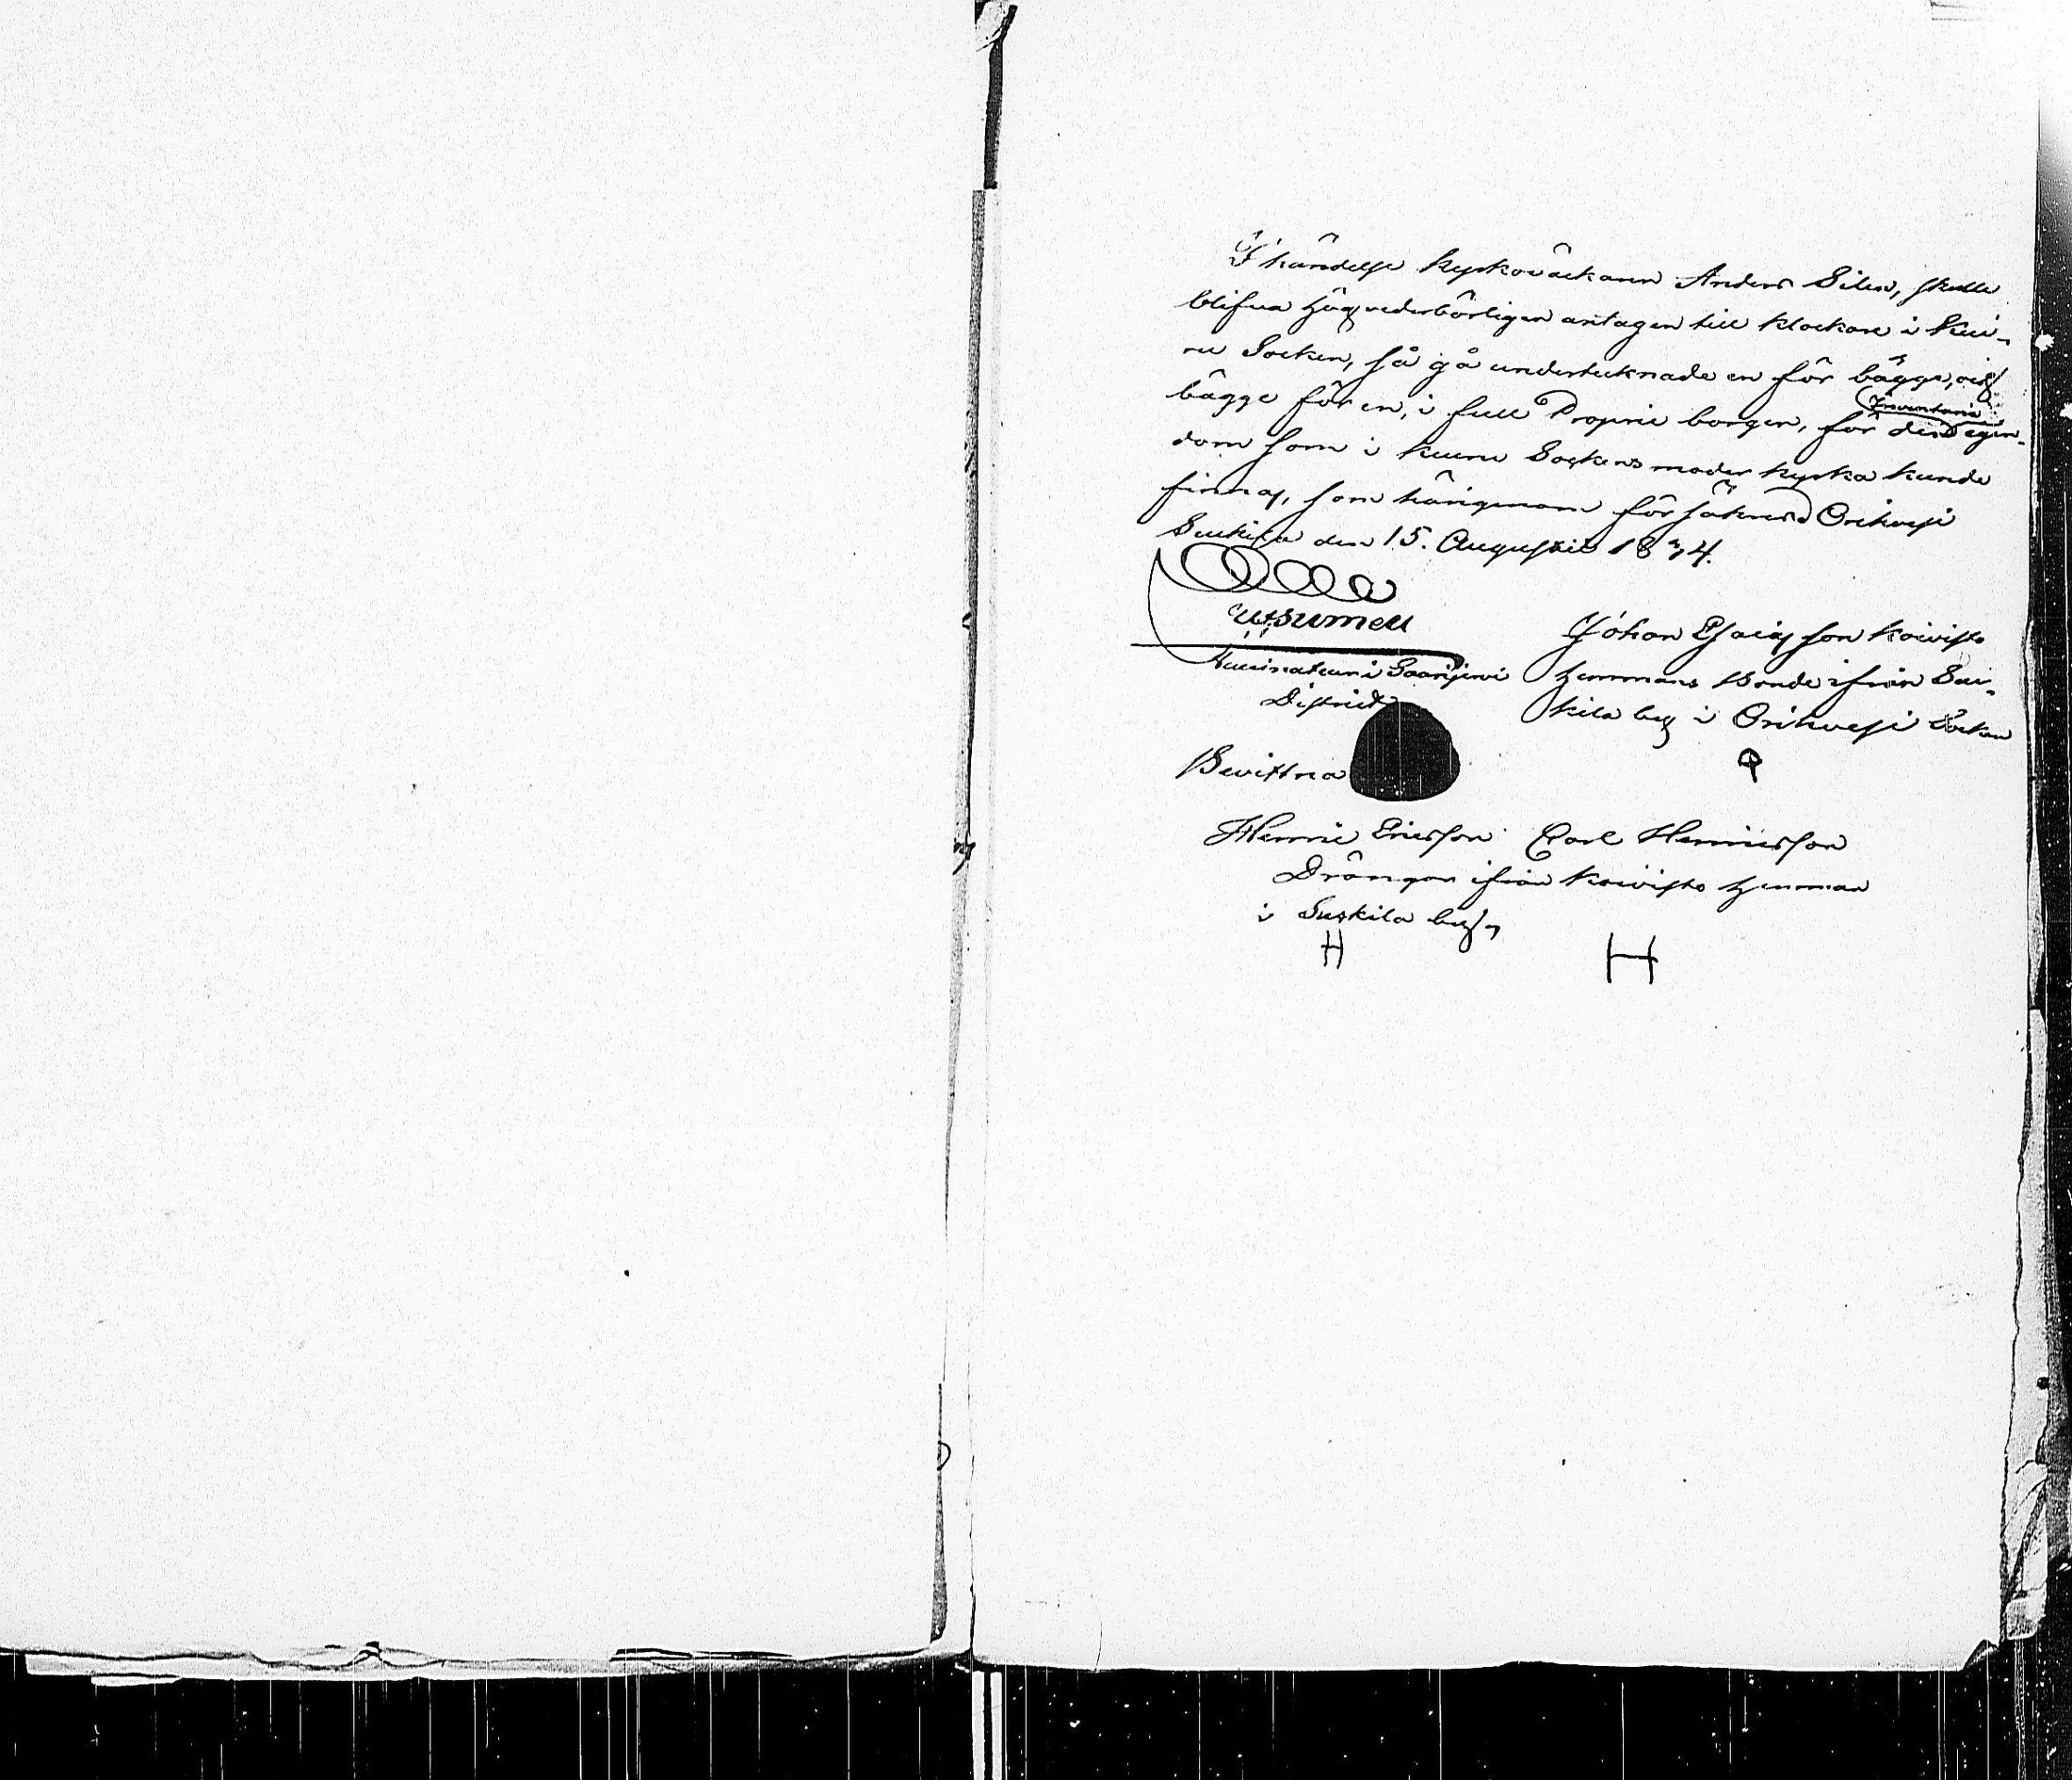 I händelse kyrkoväckaren Anders Silen, skulle
blifva högvederbörligen antagen till klockare i Kuu-
ru Socken, så gå undertecknade en för bägge, och
bägge för en, i full Proprie borgen, för den Inventarie egen-
dom som i Kuuru Sockens moder kyrka kunde
finnas, som härigenom försäkras Orihvesi
Suikila den 15. Augustii 1834.
Johan Esaias son Koivisto
i Saarijervi hemmans Bonde ifrån Sui-
District kila by i Orihvesi Socken
Bevittna
Henric Ericsson Carl Henricsson
Drängar ifrån Koivisto hemman
i Suikila by
H H